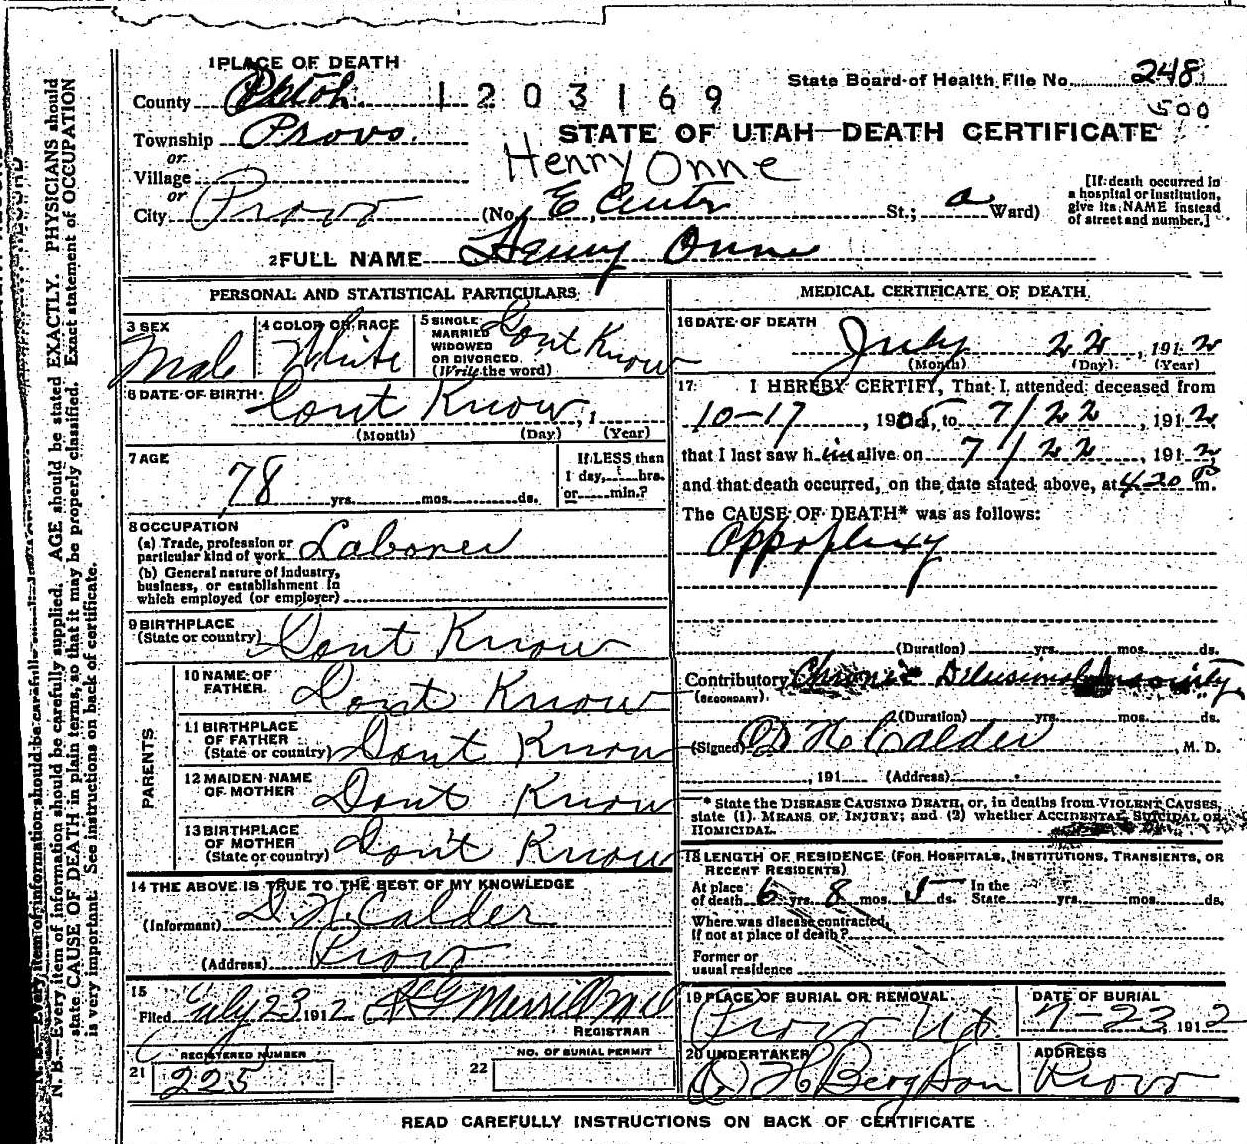 1 PLACE OF DEATH
County Utah. 1203169
State Board of Health File No. 248
500
Township Provo.
STATE OF UTAH—DEATH CERTIFICATE
or
Village
Henry Onne
or
City Provo (No. E Center St.; a Ward)
[If death occurred in a hospital or institution, give its NAME instead of street and number.]
2 FULL NAME Henry Onne
PERSONAL AND STATISTICAL PARTICULARS
3 SEX Male
4 COLOR OR RACE White
5 SINGLE MARRIED WIDOWED OR DIVORCED (Write the word) Dont Know
6 DATE OF BIRTH Dont Know, 1
(Month) (Day) (Year)
7 AGE 78 yrs. mos. ds.
If LESS than 1 day, hrs. or min.?
8 OCCUPATION
(a) Trade, profession or particular kind of work Laborer
(b) General nature of industry, business, or establishment in which employed (or employer)
9 BIRTHPLACE (State or country) Dont Know
PARENTS
10 NAME OF FATHER Dont Know
11 BIRTHPLACE OF FATHER (State or country) Dont Know
12 MAIDEN NAME OF MOTHER Dont Know
13 BIRTHPLACE OF MOTHER (State or country) Don't Know
14 THE ABOVE IS TRUE TO THE BEST OF MY KNOWLEDGE
(Informant) D. H. Calder
(Address) Provo
15
Filed July 23 1912
Merrill MD
REGISTRAR
REGISTERED NUMBER
21 225
NO. OF BURIAL PERMIT
22
MEDICAL CERTIFICATE OF DEATH
16 DATE OF DEATH
July 22, 1912
(Month) (Day) (Year)
17 I HEREBY CERTIFY, That I attended deceased from
10-17, 1905, to 7/22, 1912
that I last saw him alive on 7/22, 1912,
and that death occurred, on the date stated above, at 4.20 P m.
The CAUSE OF DEATH* was as follows:
Appoplexy
(Duration) yrs. mos. ds.
Contributory Chronic Delusional Insanity
(SECONDARY)
(Duration) yrs. mos. ds.
(Signed) D H Calder, M. D.
, 191 (Address)
* State the DISEASE CAUSING DEATH, or, in deaths from VIOLENT CAUSES, state (1) MEANS OF INJURY; and (2) whether ACCIDENTAL, SUICIDAL OR HOMICIDAL.
18 LENGTH OF RESIDENCE (FOR HOSPITALS, INSTITUTIONS, TRANSIENTS, OR RECENT RESIDENTS)
At place of death 6 yrs. 8 mos. 5 ds. In the State yrs. mos. ds.
Where was disease contracted, If not at place of death?
Former or usual residence
19 PLACE OF BURIAL OR REMOVAL Provo Ut
DATE OF BURIAL 7-23, 1912
20 UNDERTAKER O H Berg & Son
ADDRESS Provo
READ CAREFULLY INSTRUCTIONS ON BACK OF CERTIFICATE
N. B.—Every item of information should be carefully supplied. AGE should be stated EXACTLY. PHYSICIANS should state CAUSE OF DEATH in plain terms, so that it may be properly classified. Exact statement of OCCUPATION is very important. See instructions on back of certificate.